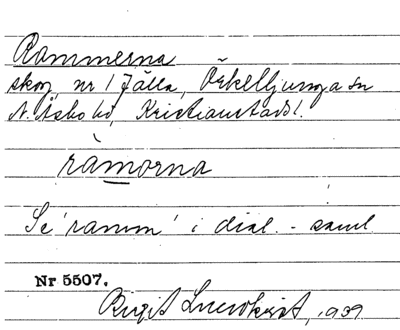 Rammerna
skog, nr 1 Jälla, Örkelljunga sn
N. Åsbo hd, Kristianstads l.
ràmorna
Se 'ramm' i dial.-saml
Nr 5507.
Birgit Lundkvist, 1939